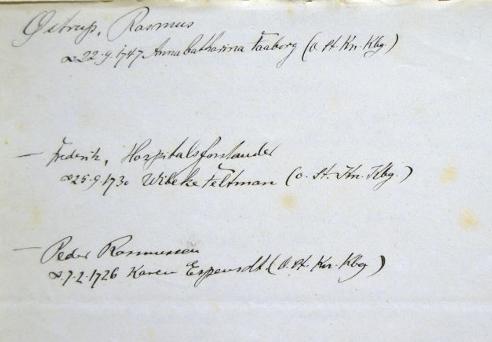 Østrup, Rasmus
∞ 22-9-1747 Anna Catharina Faaborg (O. St. Kn. Kbg.)
— Frederik, Hospitalsforstander
∞ 25-9-1730 Wibeke Feltman (O. St. Kn. Kbg.)
— Peder Rasmussen
∞ 7-2-1726 Karen Espensdt (O. St. Kn. Kbg)